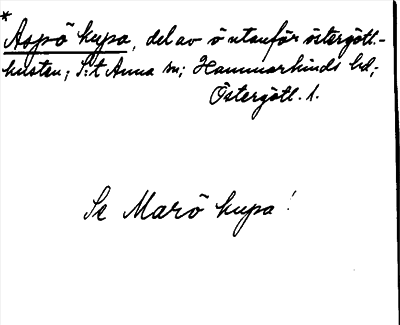 * Aspö kupa, del av ö utanför östergötl.-
kusten; S:t Anna sn; Hammarkinds hd;
Östergötl. l.
Se Marö kupa!